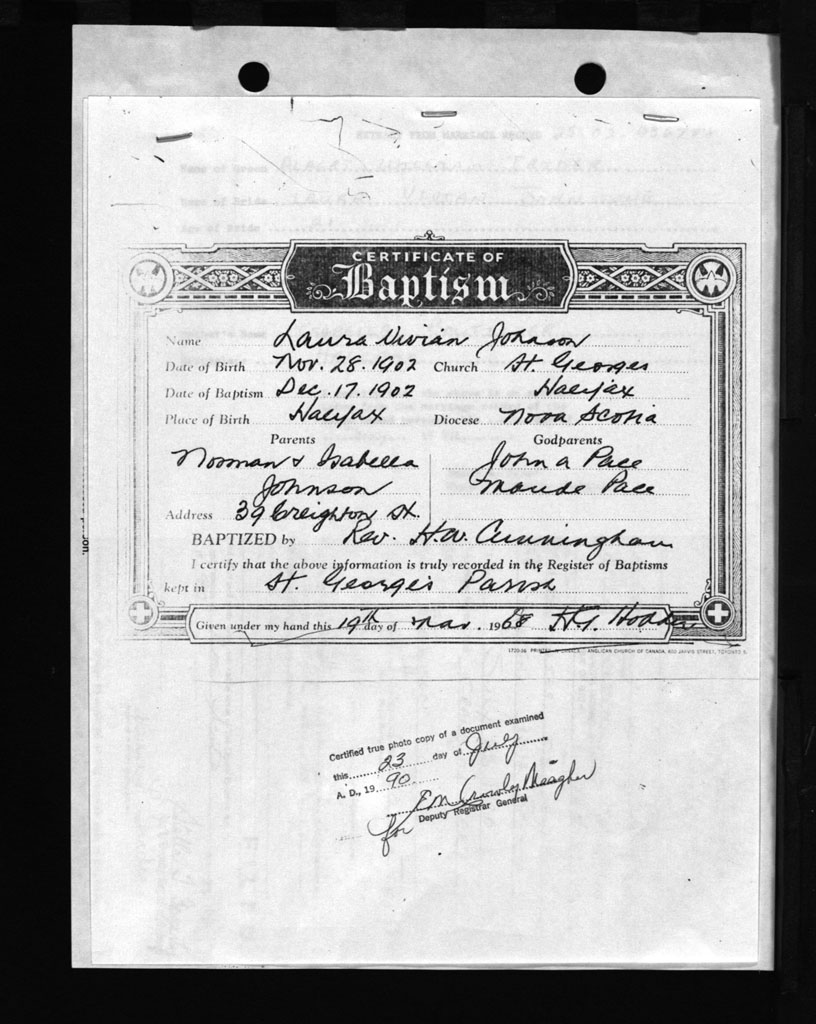 EXTRACT FROM MARRIAGE RECORD
Name of Groom
Name of Bride
Age of Bride
CERTIFICATE OF
Baptism
Name Laura Vivian Johnson
Date of Birth Nov. 28. 1902 Church St. Georges
Date of Baptism Dec. 17. 1902 Halifax
Place of Birth Halifax Diocese Nova Scotia
Parents Godparents
Norman & Isabella John A Pace
Johnson Maude Pace
Address 39 Creighton St.
BAPTIZED by Rev. H.W. Cunningham
I certify that the above information is truly recorded in the Register of Baptisms
kept in St. George's Parish
Given under my hand this 19th day of Mar. 1968 H.G. Hodder
ANGLICAN CHURCH OF CANADA, 600 JARVIS STREET, TORONTO 5.
Certified true photo copy of a document examined
this 23 day of July
A. D., 19 90
for Deputy Registrar General